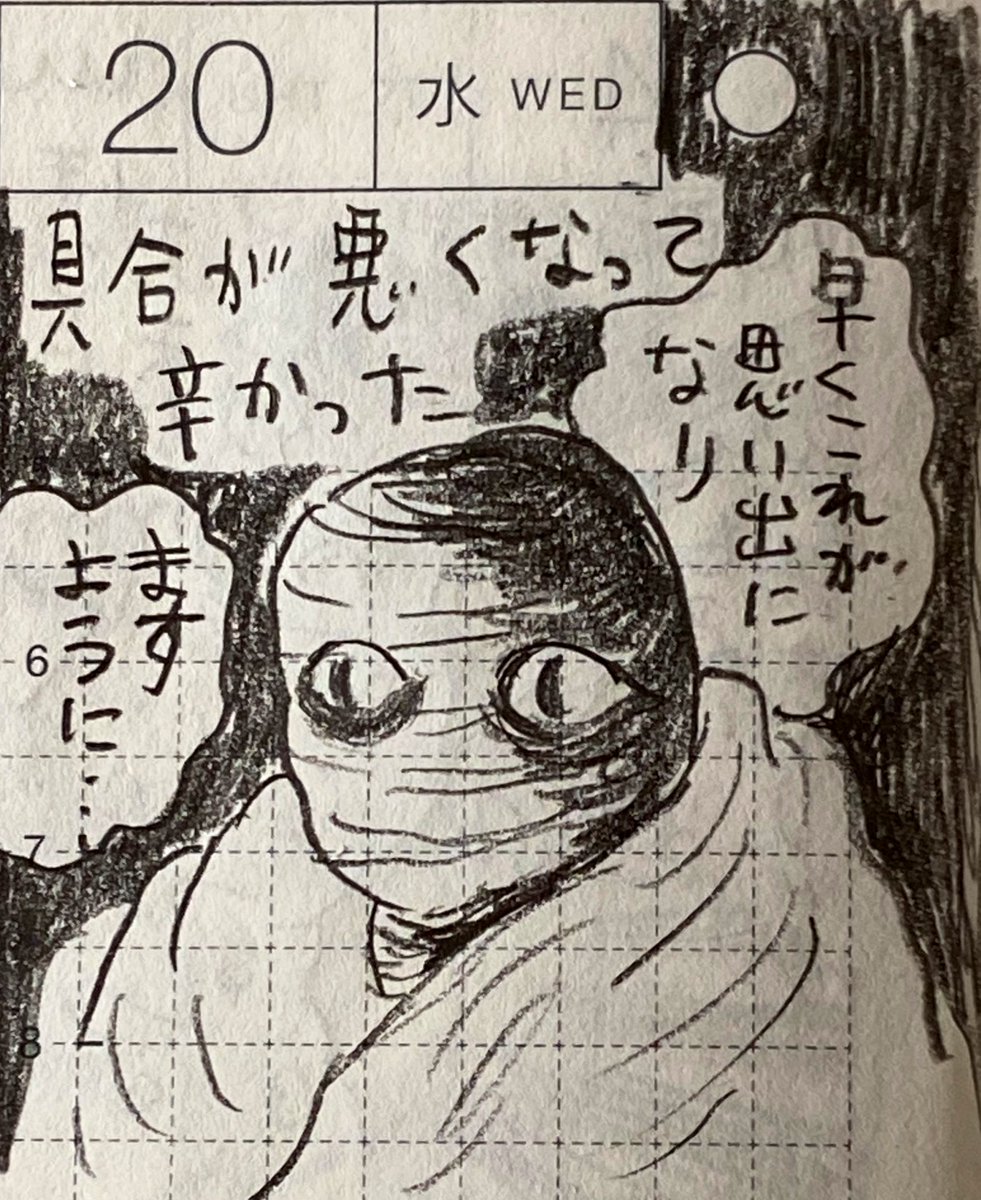 20
水 WED
具合が悪くなって
辛かった
早くこれが
思い出に
なり
ます
ように・・・
6
7
8